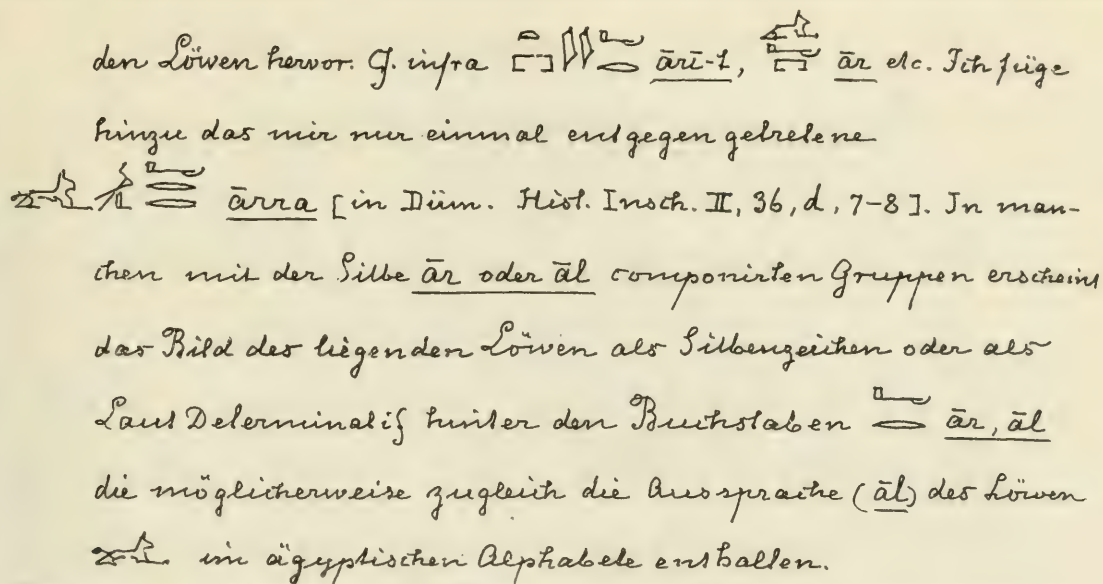 den Löwen hervor. Cf. infra 𓉐𓏏𓇌𓂝𓂋 ārī-t, 𓃭𓂝𓂋𓉐 ār etc. Ich füge
hinzu das mir nur einmal entgegen getretene
𓃭𓂝𓂋𓂋 ārra [in Düm. Hist. Insch. II, 36, d, 7-8]. In man-
chen mit der Silbe ār oder āl componirten Gruppen erscheint
das Bild des liegenden Löwen als Silbenzeichen oder als
Laut Determinatif hinter den Buchstaben 𓂝𓂋 ār, āl
die möglicherweise zugleich die Aussprache (āl) des Löwen
𓃭 im ägyptischen Alphabete enthalten.